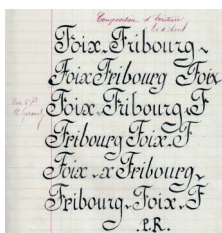 Composition d'écriture
Foix. Fribourg.
Foix Fribourg Foix
Foix. Fribourg. F
Fribourg Foix. F
Foix. x Fribourg.
Fribourg. Foix. F
.P.R.